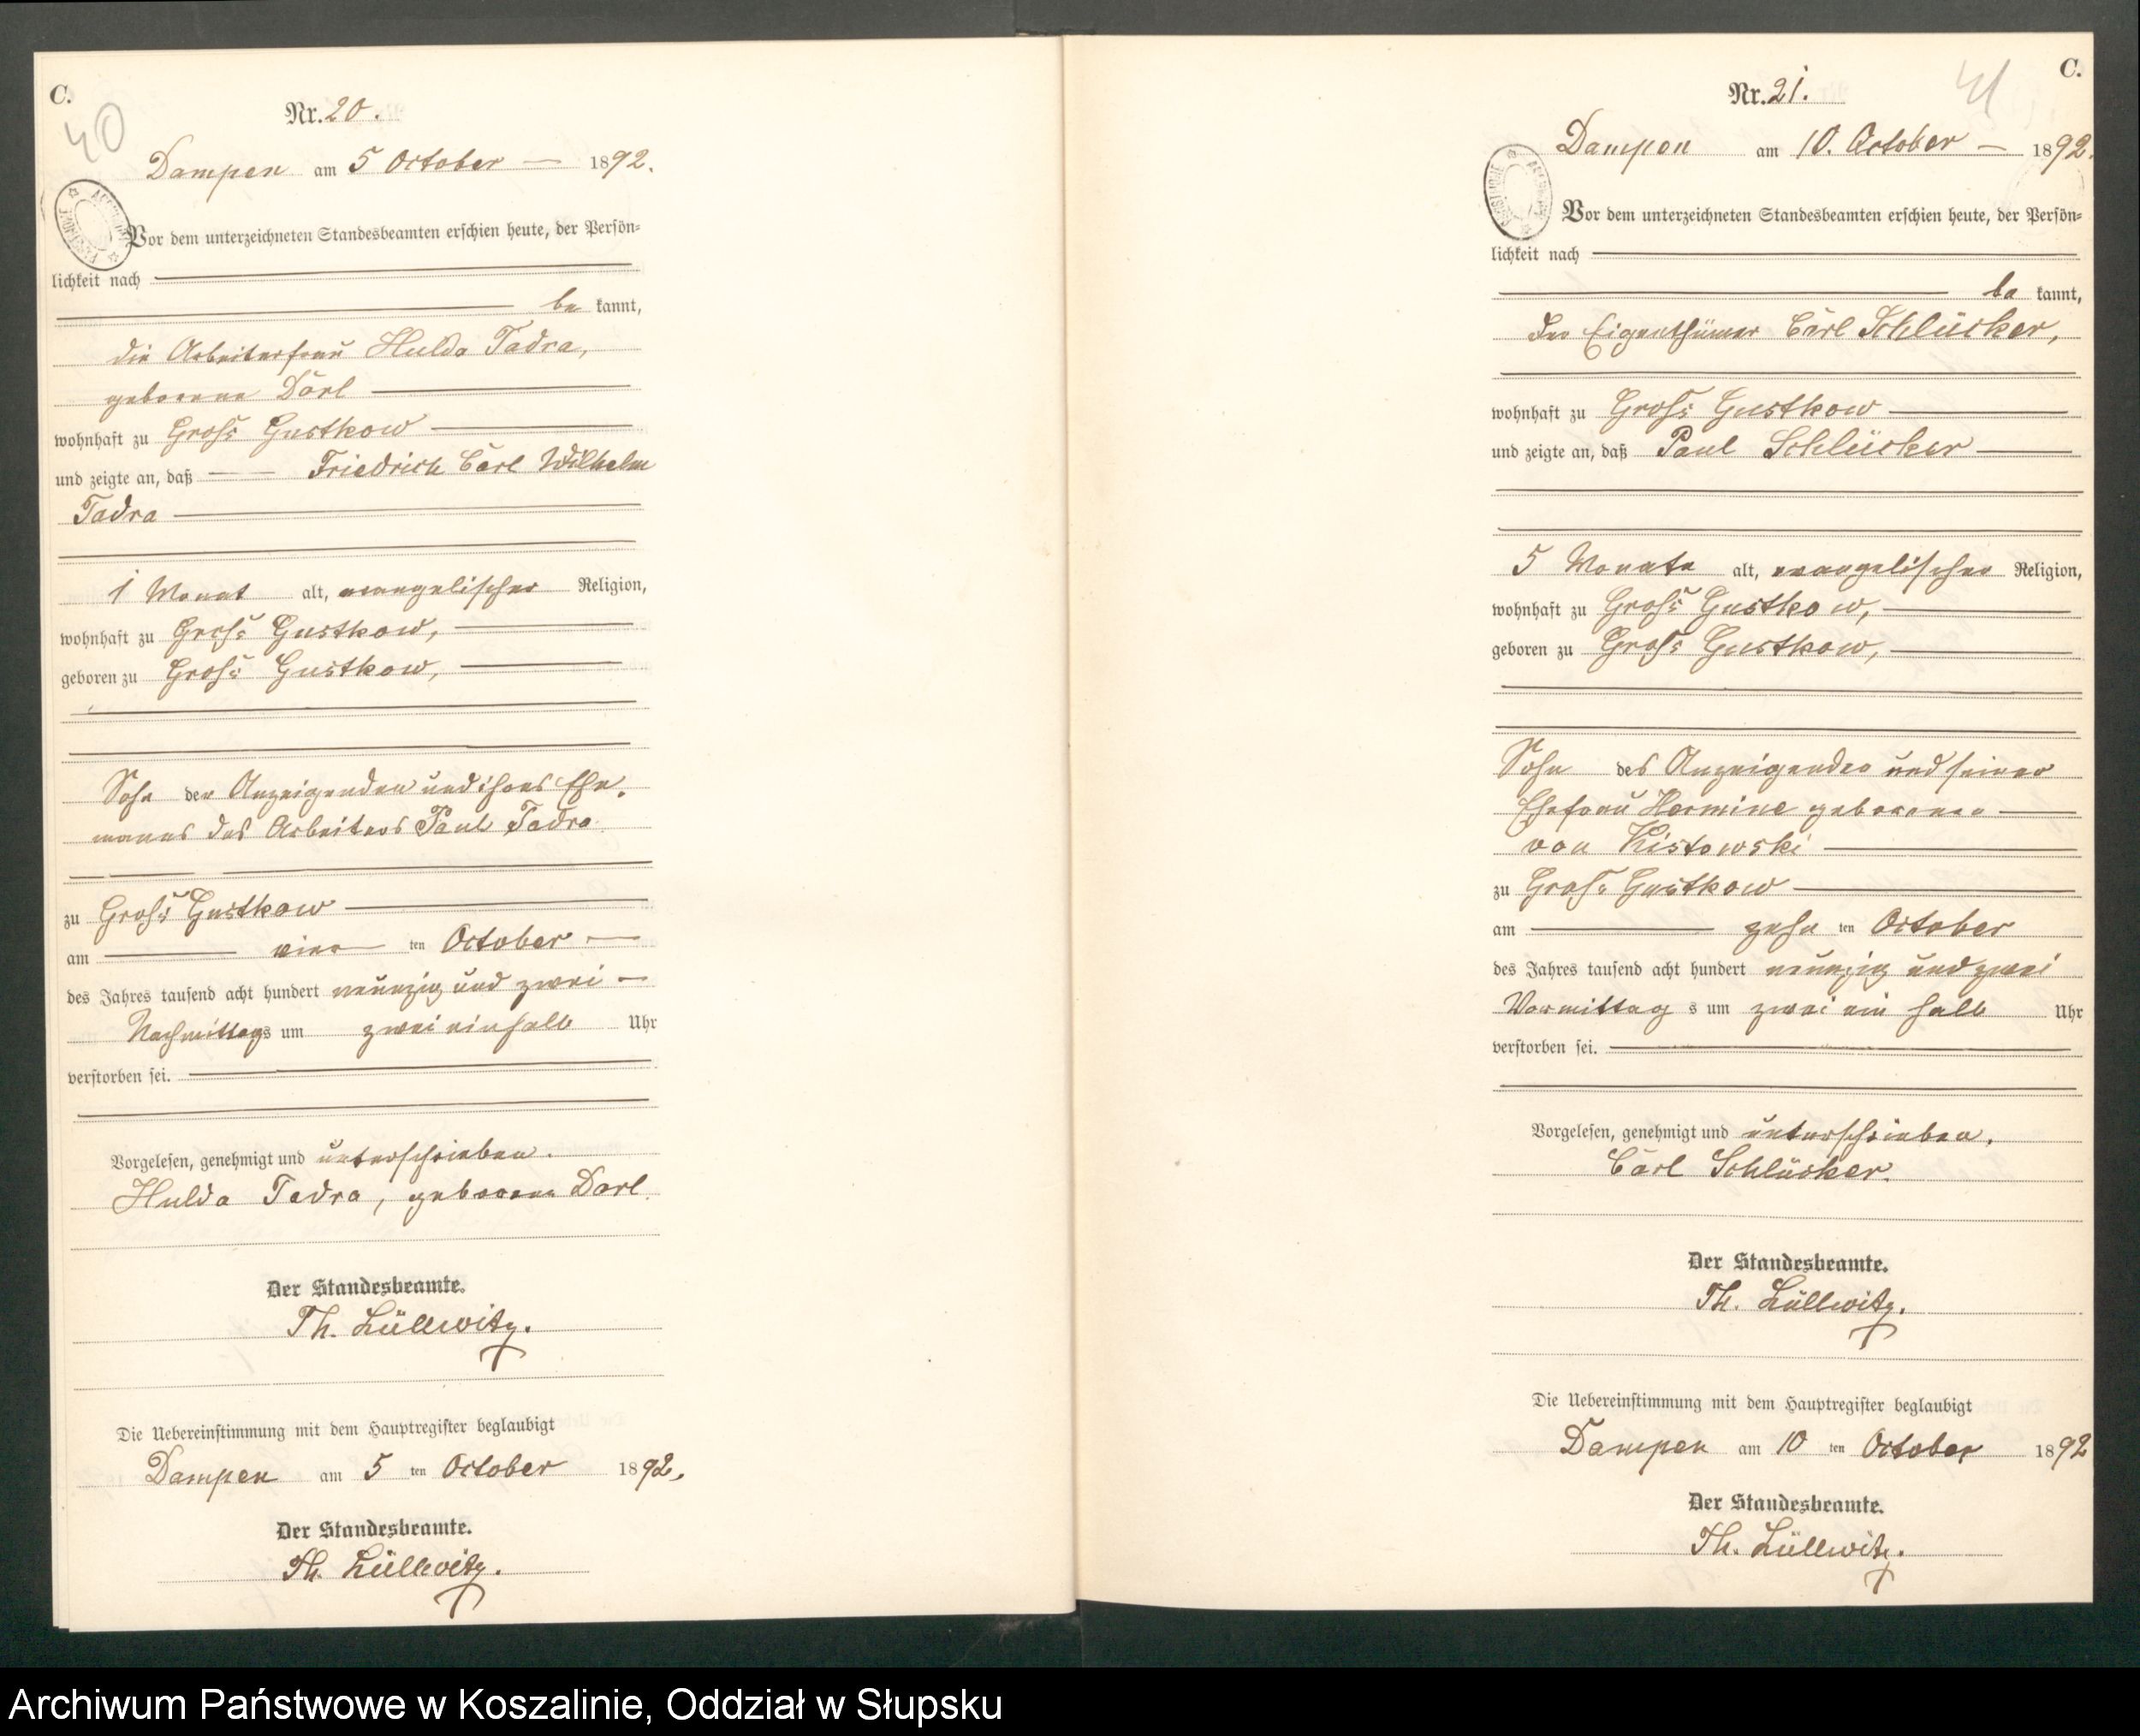 C.
40
Nr. 20.
Dampen am 5 October — 1892.
Vor dem unterzeichneten Standesbeamten erschien heute, der Persön-
lichkeit nach
be kannt,
die Arbeiterfrau Hulda Tadra,
geborene Dorl
wohnhaft zu Gross Gustkow
und zeigte an, daß Friedrich Carl Wilhelm
Tadra
1 Monat alt, evangelischer Religion,
wohnhaft zu Gross Gustkow,
geboren zu Gross Gustkow,
Sohn der Anzeigenden und ihres Ehe-
manns des Arbeiters Paul Tadra
zu Gross Gustkow
am vier ten October
des Jahres tausend acht hundert neunzig und zwei
Nachmittags um zwei ein halb Uhr
verstorben sei.
Vorgelesen, genehmigt und unterschrieben.
Hulda Tadra, geborene Dorl.
Der Standesbeamte.
Th. Lüllwitz.
Die Uebereinstimmung mit dem Hauptregister beglaubigt
Dampen am 5 ten October 1892.
Der Standesbeamte.
Th. Lüllwitz.
C.
41
Nr. 21.
Dampen am 10. October — 1892.
Vor dem unterzeichneten Standesbeamten erschien heute, der Persön-
lichkeit nach
be kannt,
der Eigenthümer Carl Schlücker,
wohnhaft zu Gross Gustkow
und zeigte an, daß Paul Schlücker
5 Monate alt, evangelischer Religion,
wohnhaft zu Gross Gustkow,
geboren zu Gross Gustkow,
Sohn des Anzeigenden und seiner
Ehefrau Hermine geborenen
von Kistowski
zu Gross Gustkow
am zehn ten October
des Jahres tausend acht hundert neunzig und zwei
Vormittag s um zwei ein halb Uhr
verstorben sei.
Vorgelesen, genehmigt und unterschrieben.
Carl Schlücker.
Der Standesbeamte.
Th. Lüllwitz.
Die Uebereinstimmung mit dem Hauptregister beglaubigt
Dampen am 10 ten October 1892
Der Standesbeamte.
Th. Lüllwitz.
Archiwum Państwowe w Koszalinie, Oddział w Słupsku